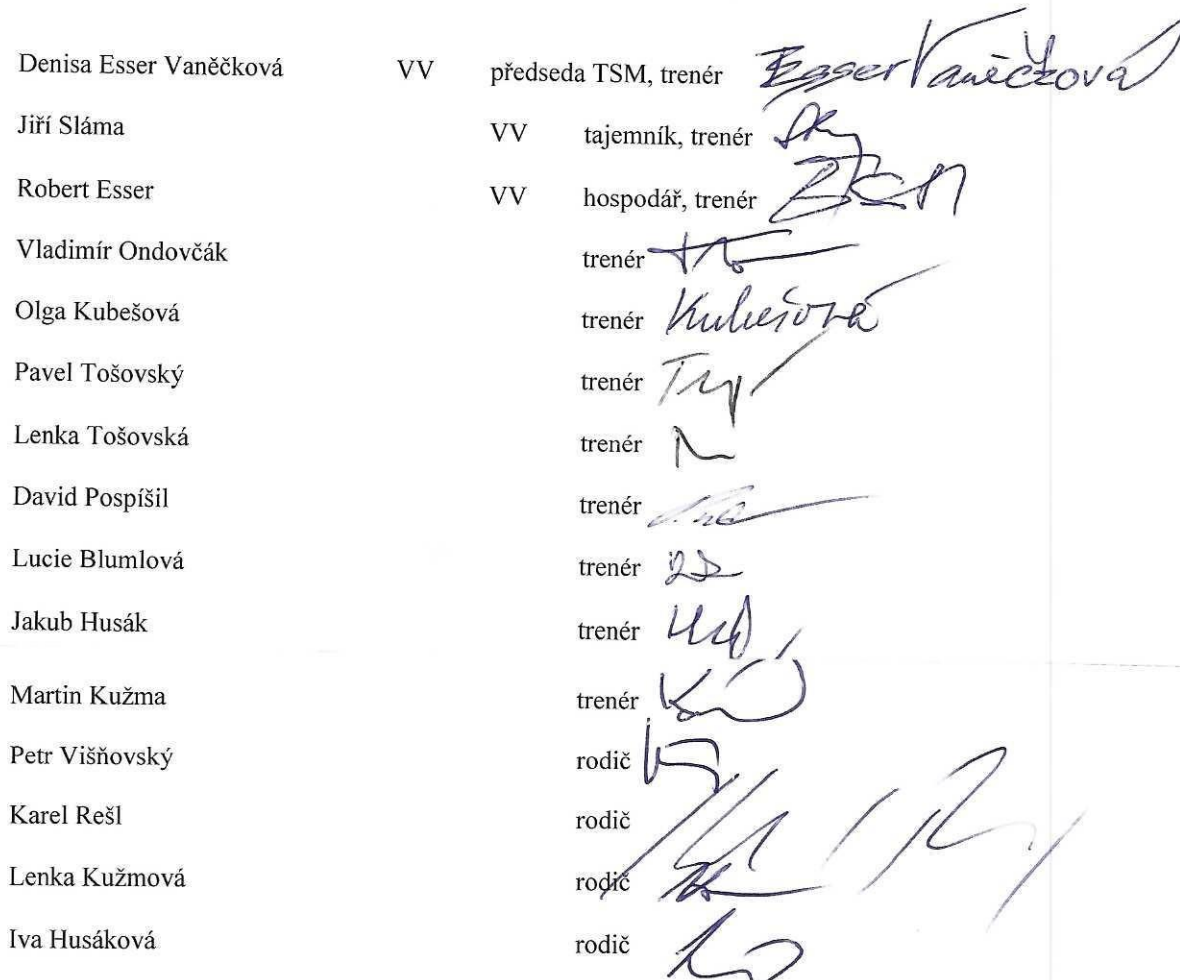 Denisa Esser Vaněčková VV předseda TSM, trenér Esser Vaněčková
Jiří Sláma VV tajemník, trenér
Robert Esser VV hospodář, trenér
Vladimír Ondovčák trenér
Olga Kubešová trenér Kubešová
Pavel Tošovský trenér
Lenka Tošovská trenér
David Pospíšil trenér
Lucie Blumlová trenér
Jakub Husák trenér
Martin Kužma trenér
Petr Višňovský rodič
Karel Rešl rodič
Lenka Kužmová rodič
Iva Husáková rodič